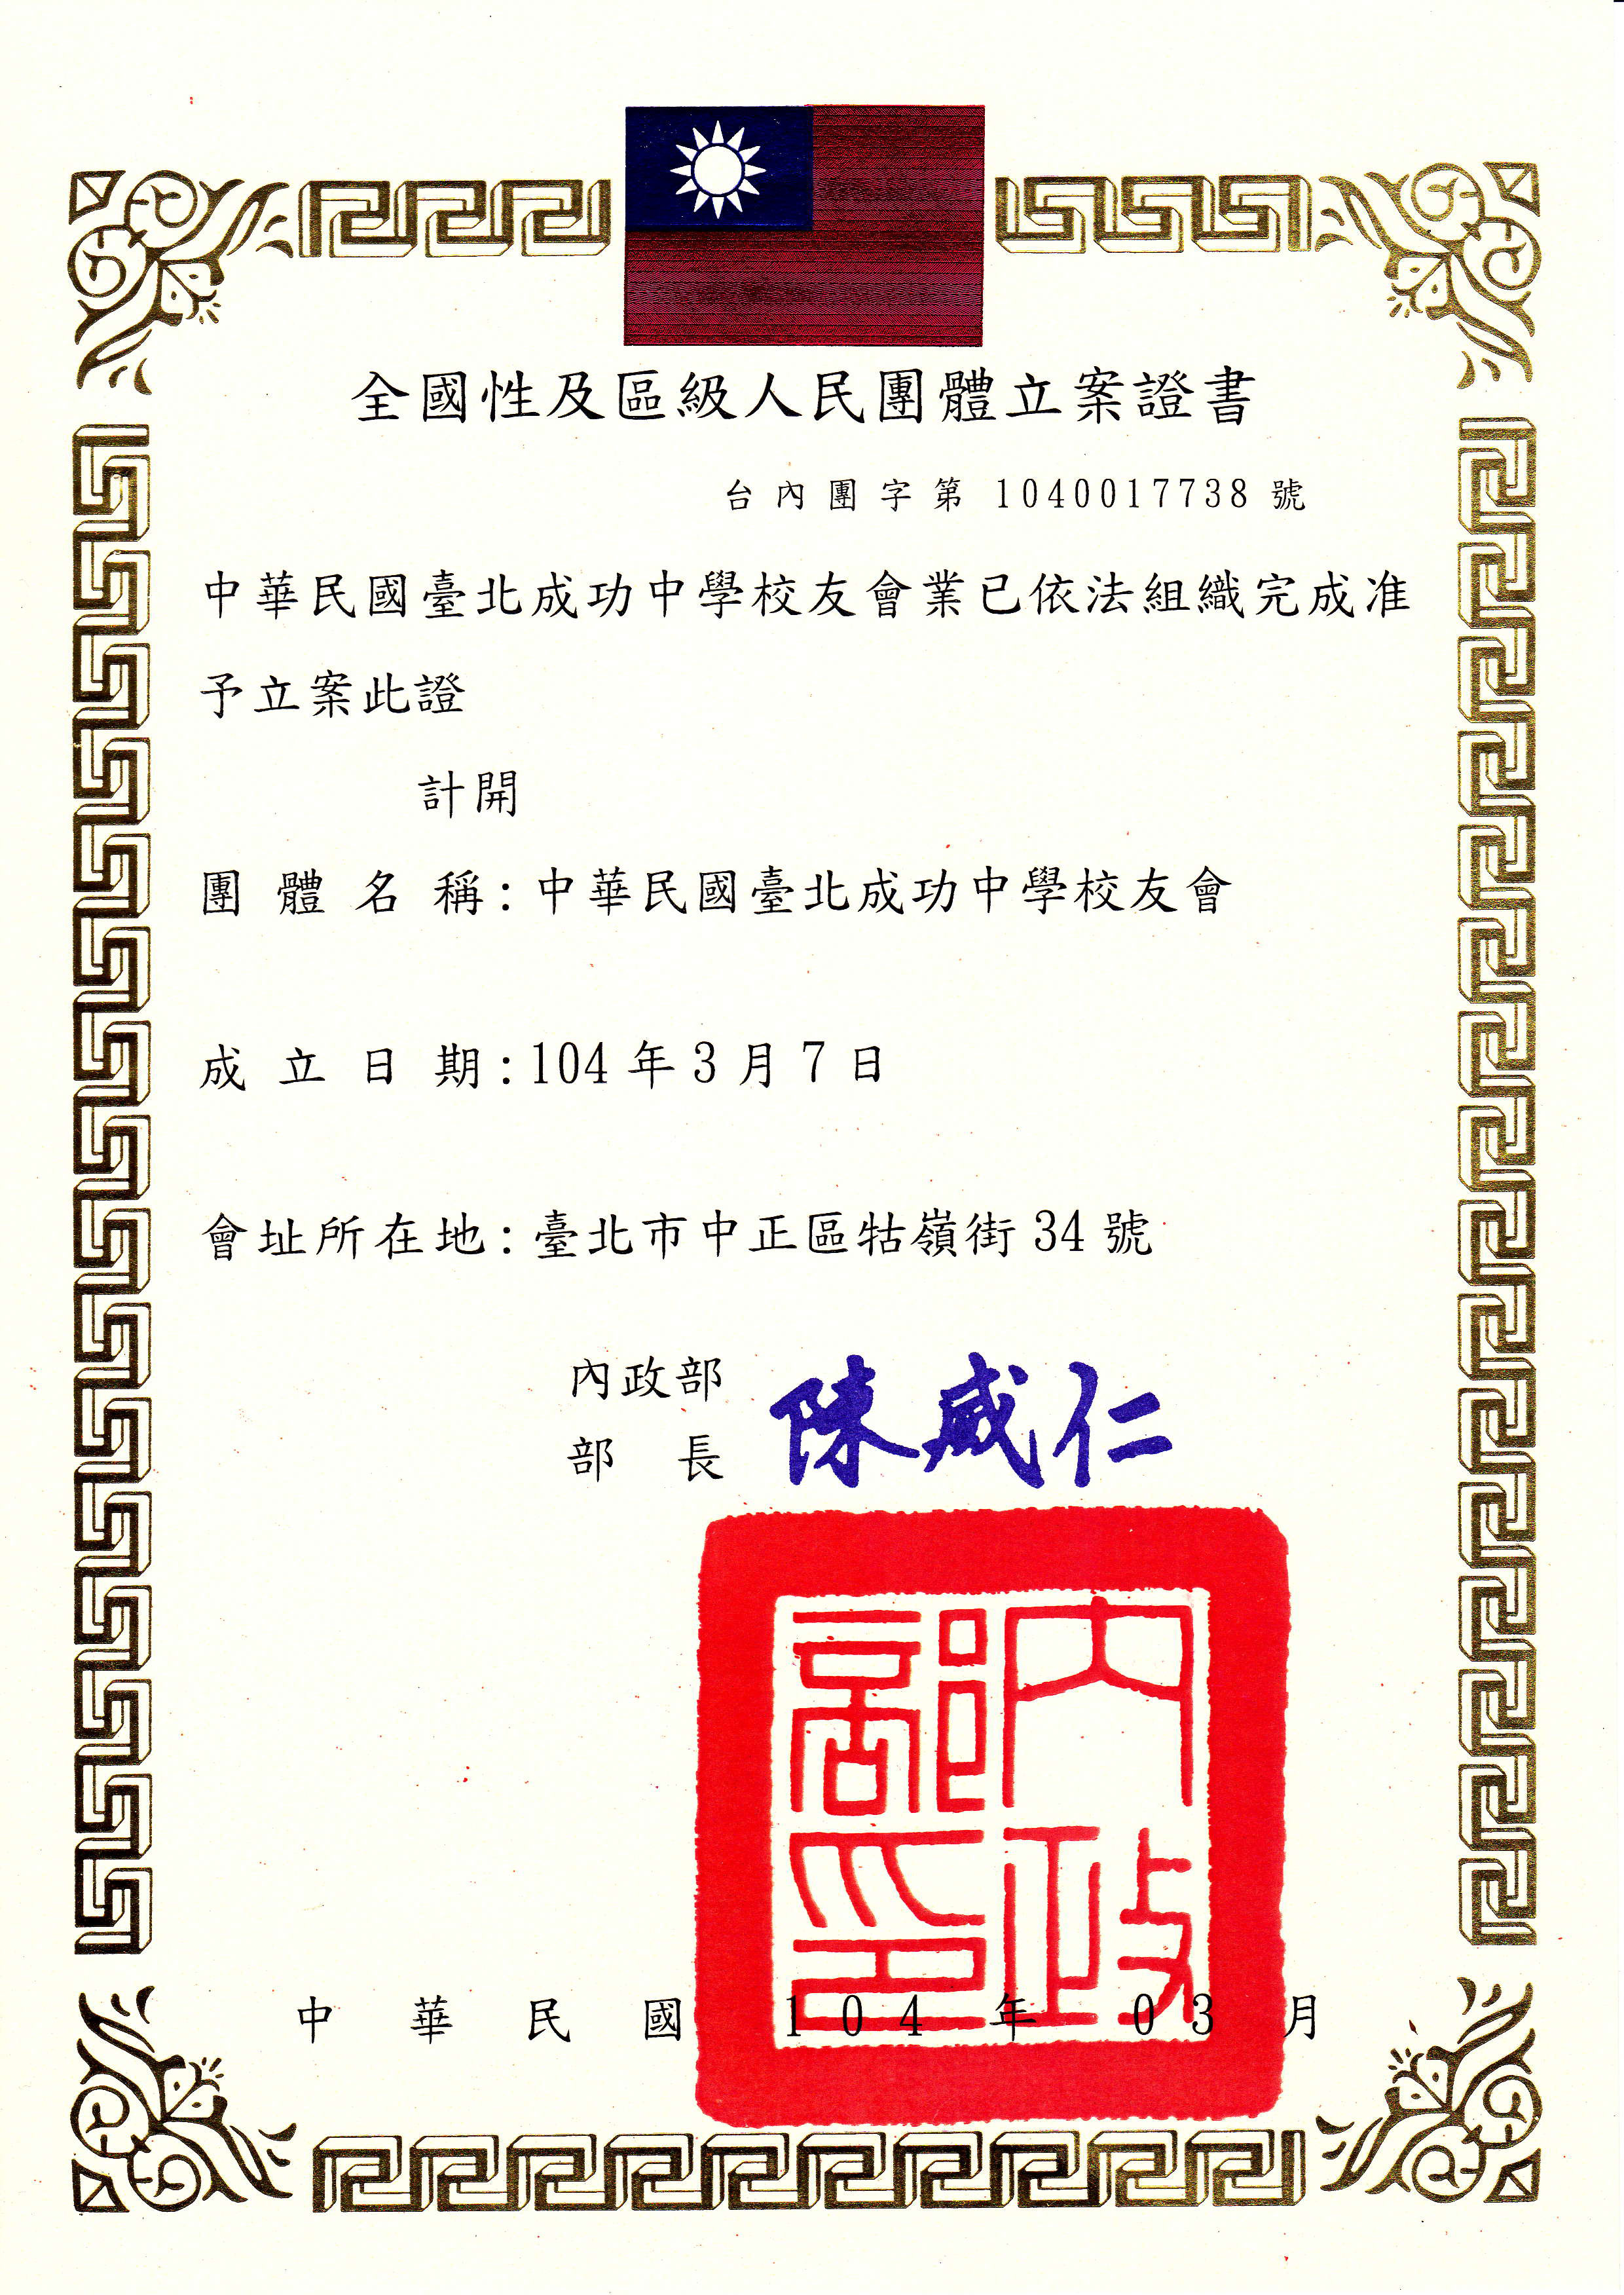 全國性及區級人民團體立案證書
台內團字第 1040017738 號
中華民國臺北成功中學校友會業已依法組織完成准
予立案此證
計開
團體名稱:中華民國臺北成功中學校友會
成立日期:104年3月7日
會址所在地:臺北市中正區牯嶺街34號
內政部
部長
陳威仁
內政部印
中華民國 104 年 03 月